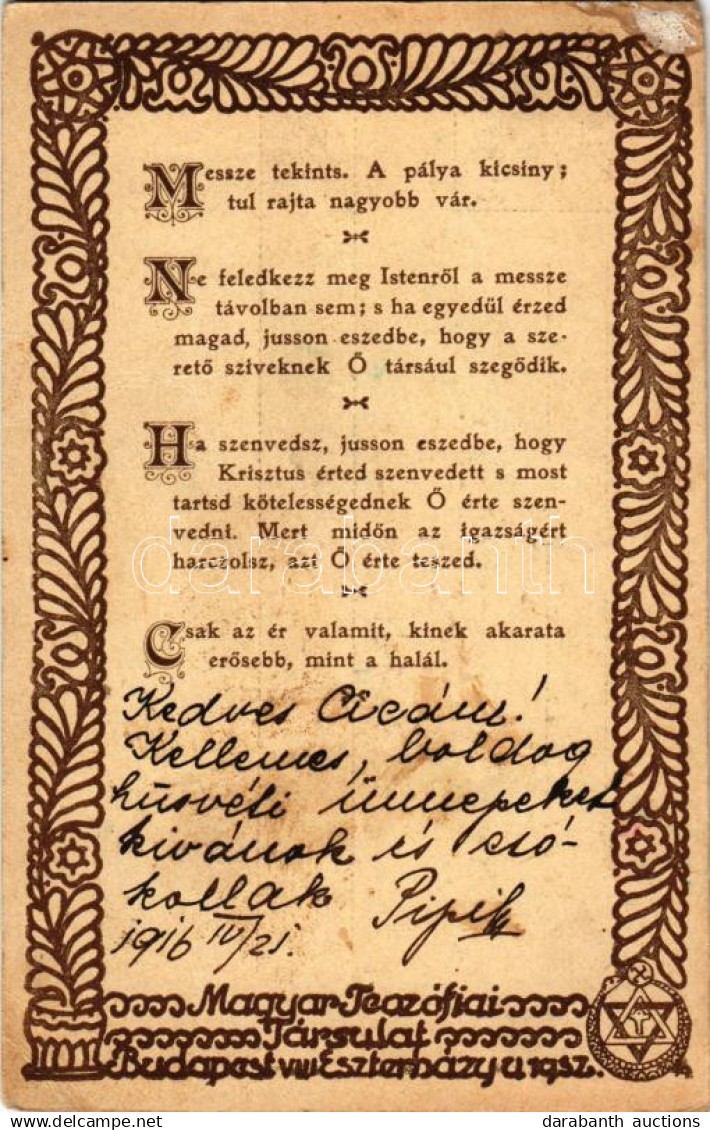 Messze tekints. A pálya kicsiny;
tul rajta nagyobb vár.
Ne feledkezz meg Istenről a messze
távolban sem; s ha egyedül érzed
magad, jusson eszedbe, hogy a sze-
rető sziveknek Ő társául szegődik.
Ha szenvedsz, jusson eszedbe, hogy
Krisztus érted szenvedett s most
tartsd kötelességednek Ő érte szen-
vedni. Mert midőn az igazságért
harczolsz, azt Ő érte teszed.
Csak az ér valamit, kinek akarata
erősebb, mint a halál.
Kedves Cicám!
Kellemes, boldog
húsvéti ünnepeket
kivánok és csó-
kollak Pipi
1916 IV/21.
Magyar Teozófiai
Társulat
Budapest VIII Eszterházy u 19sz.
darabanth
darabanth auctions